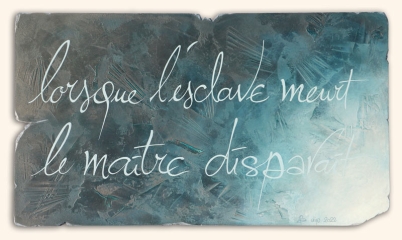 lorsque l'esclave meurt
le maître disparaît